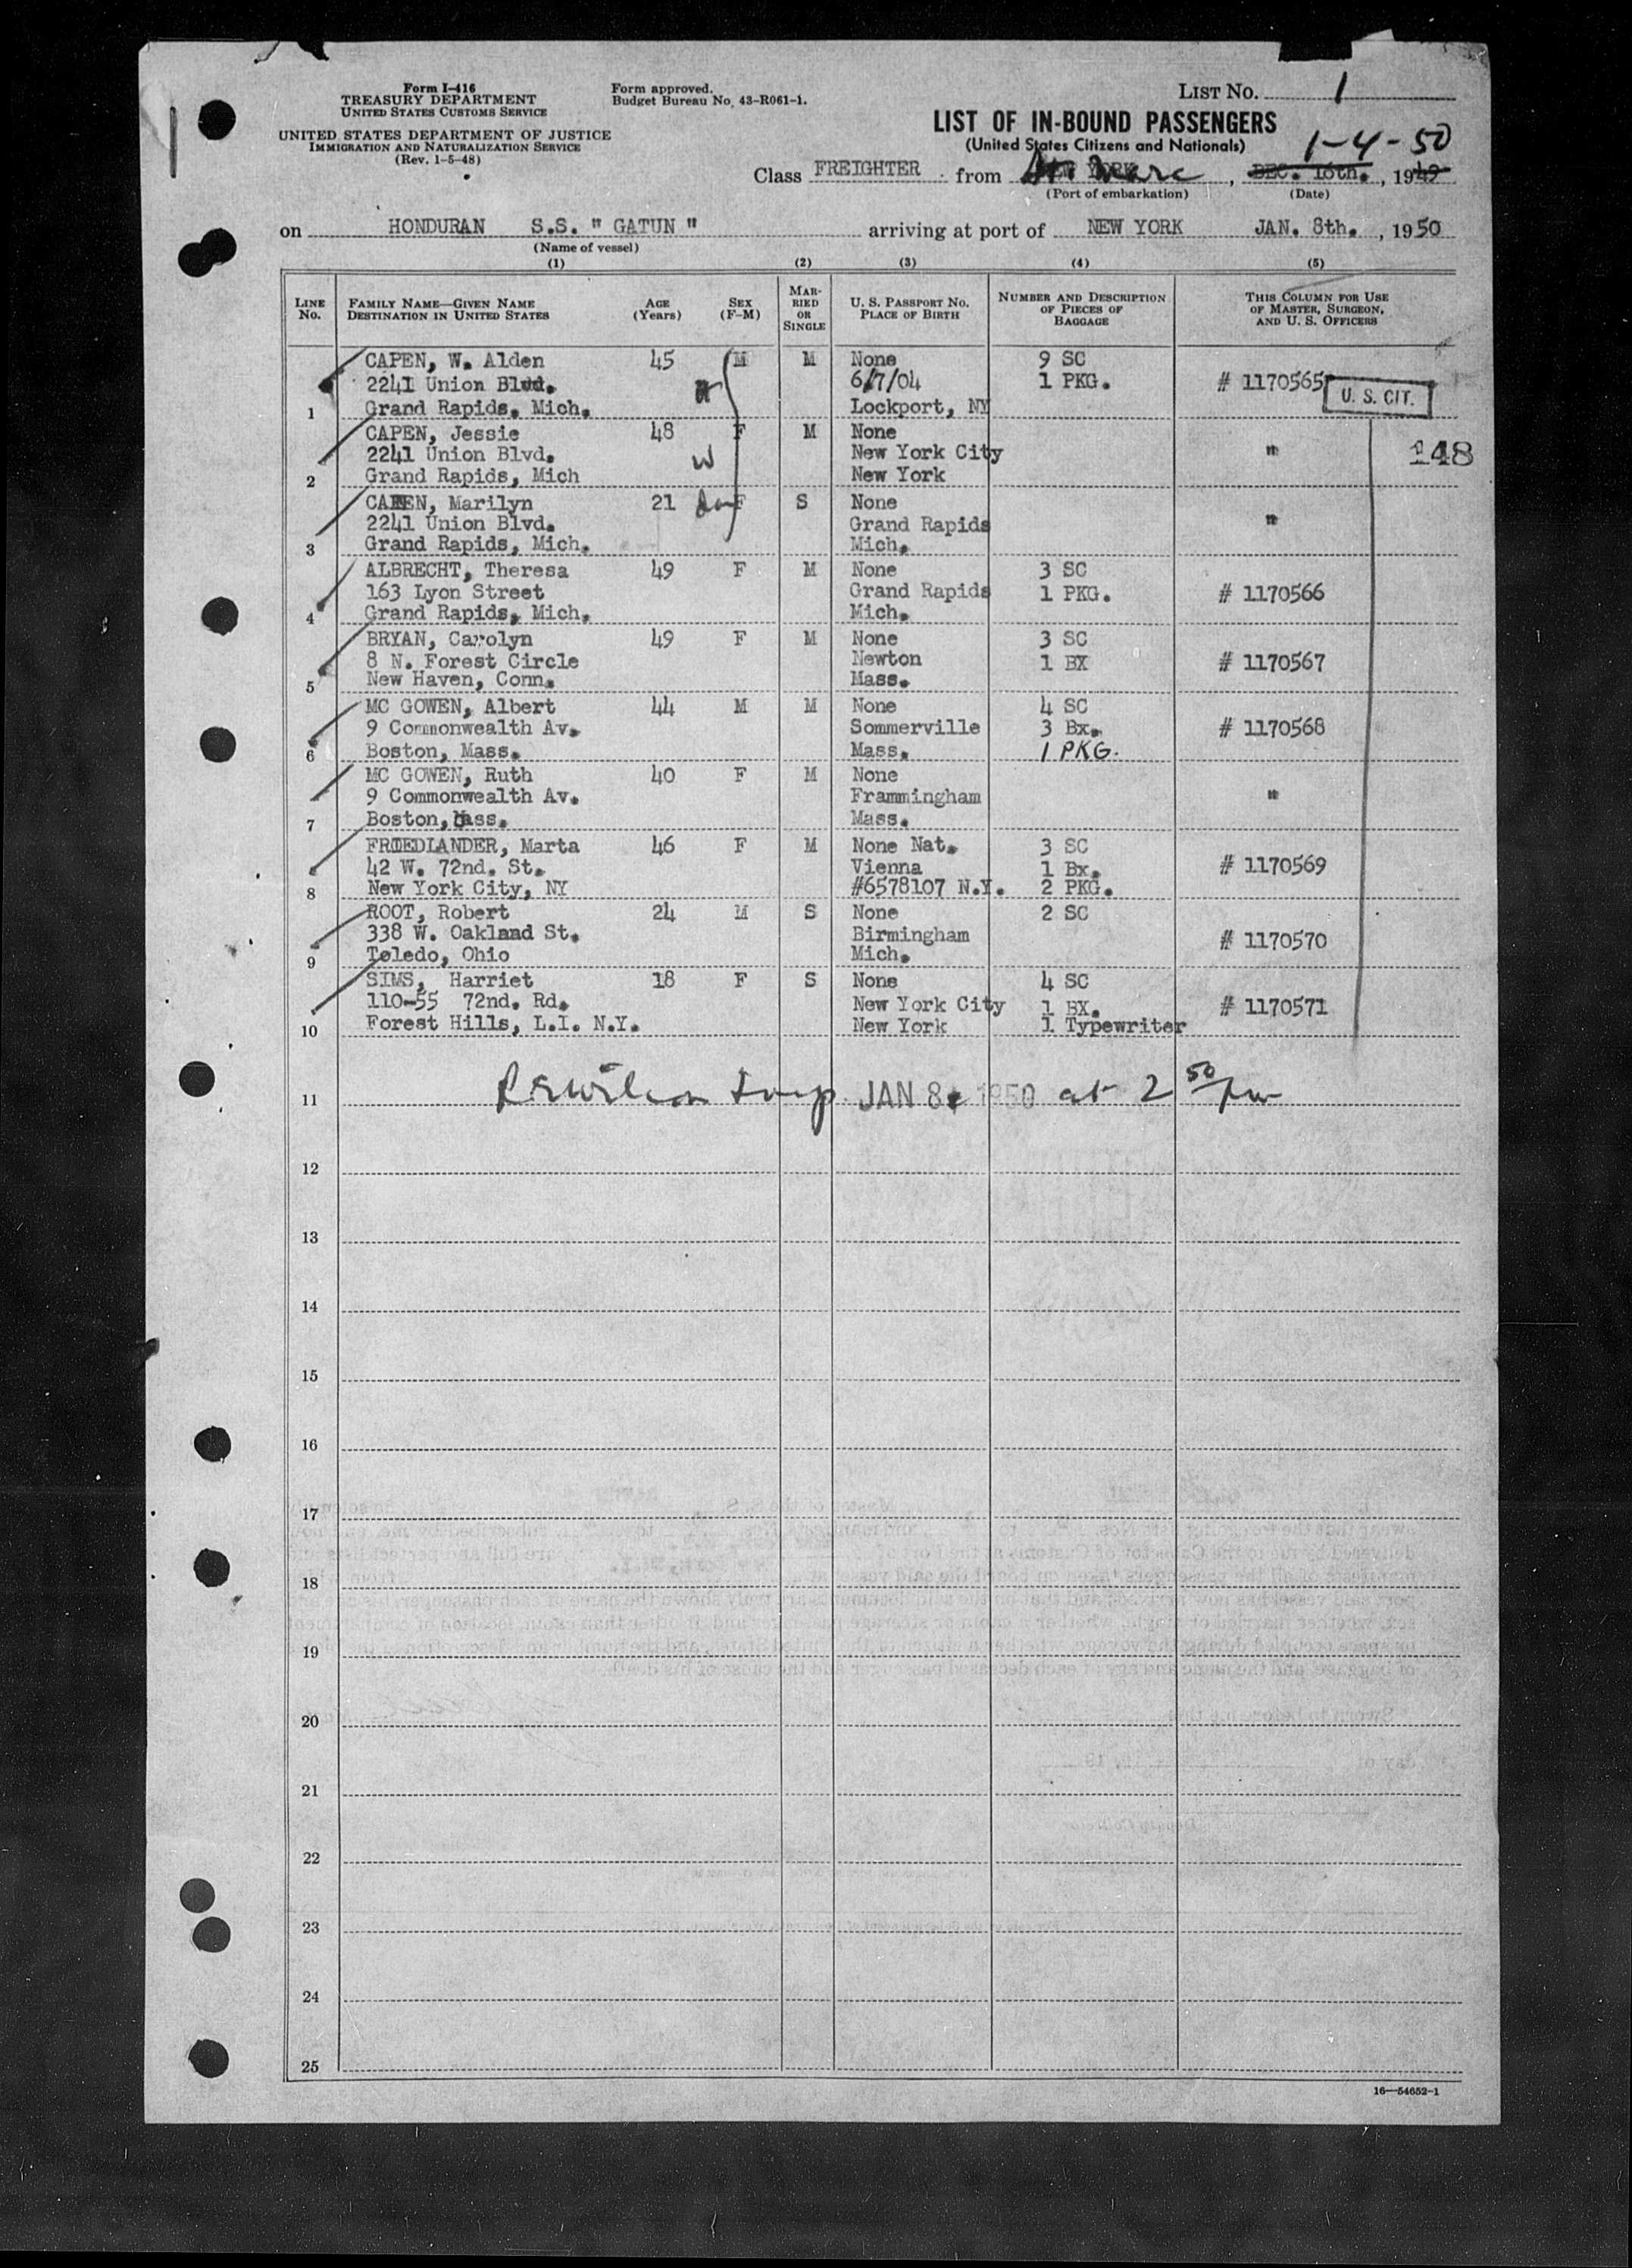 Form I-416
TREASURY DEPARTMENT
UNITED STATES CUSTOMS SERVICE
UNITED STATES DEPARTMENT OF JUSTICE
IMMIGRATION AND NATURALIZATION SERVICE
(Rev. 1-5-48)
Form approved.
Budget Bureau No. 43-R061-1.
LIST NO. 1
LIST OF IN-BOUND PASSENGERS
(United States Citizens and Nationals)
1-4-50
Class FREIGHTER from St. Marc, DEC. 16th., 1949
(Port of embarkation) (Date)
on HONDURAN S.S. " GATUN " arriving at port of NEW YORK JAN. 8th., 1950
(Name of vessel)
(1) (2) (3) (4) (5)
LINE No. FAMILY NAME—GIVEN NAME DESTINATION IN UNITED STATES AGE (Years) SEX (F-M) MARRIED OR SINGLE U. S. PASSPORT NO. PLACE OF BIRTH NUMBER AND DESCRIPTION OF PIECES OF BAGGAGE THIS COLUMN FOR USE OF MASTER, SURGEON, AND U. S. OFFICERS
CAPEN, W. Alden 45 M M None 9 SC
2241 Union Blvd. H 6/7/04 1 PKG. # 1170565 U. S. CIT.
1 Grand Rapids, Mich. Lockport, NY
CAPEN, Jessie 48 F M None
2241 Union Blvd. W New York City " 148
2 Grand Rapids, Mich New York
CAPEN, Marilyn 21 dau F S None
2241 Union Blvd. Grand Rapids "
3 Grand Rapids, Mich. Mich.
ALBRECHT, Theresa 49 F M None 3 SC
163 Lyon Street Grand Rapids 1 PKG. # 1170566
4 Grand Rapids, Mich. Mich.
BRYAN, Carolyn 49 F M None 3 SC
8 N. Forest Circle Newton 1 BX # 1170567
5 New Haven, Conn. Mass.
MC GOWEN, Albert 44 M M None 4 SC
9 Commonwealth Av. Sommerville 3 Bx. # 1170568
6 Boston, Mass. Mass. 1 PKG.
MC GOWEN, Ruth 40 F M None
9 Commonwealth Av. Frammingham "
7 Boston, Mass. Mass.
FRIEDLANDER, Marta 46 F M None Nat. 3 SC
42 W. 72nd. St. Vienna 1 Bx. # 1170569
8 New York City, NY #6578107 N.Y. 2 PKG.
ROOT, Robert 24 M S None 2 SC
338 W. Oakland St. Birmingham # 1170570
9 Toledo, Ohio Mich.
SIMS, Harriet 18 F S None 4 SC
110-55 72nd. Rd. New York City 1 BX. # 1170571
10 Forest Hills, L.I. N.Y. New York 1 Typewriter
11 Insp. JAN 8 1950 at 2 50 pm
12
13
14
15
16
17
18
19
20
21
22
23
24
25
16—54652-1